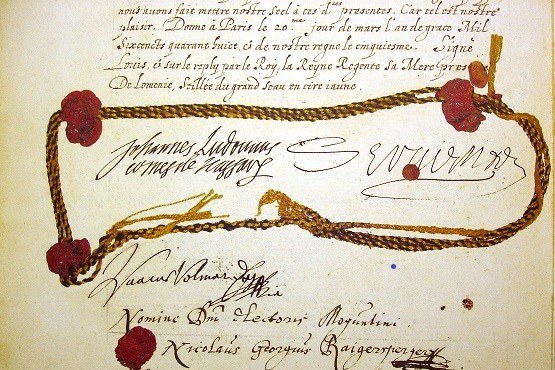 nous avons fait mettre nostre seel à ces d.tes presentes. Car tel est nostre
plaisir. Donné à Paris le 20.me jour de mars l'an de grace Mil
Sixcents quarant huict, et de nostre regne le cinquiesme. Signé
Louis, et sur le reply par le Roy, la Reyne Regente sa Mere
De Lomenie, Scellée du grand seau en cire iaune.
Johannes Ludovicus
comes de Nassau
Servien
Isaacus Volmar
Nomine Dni Electoris Moguntini.
Nicolaus Georgius Raigersperger